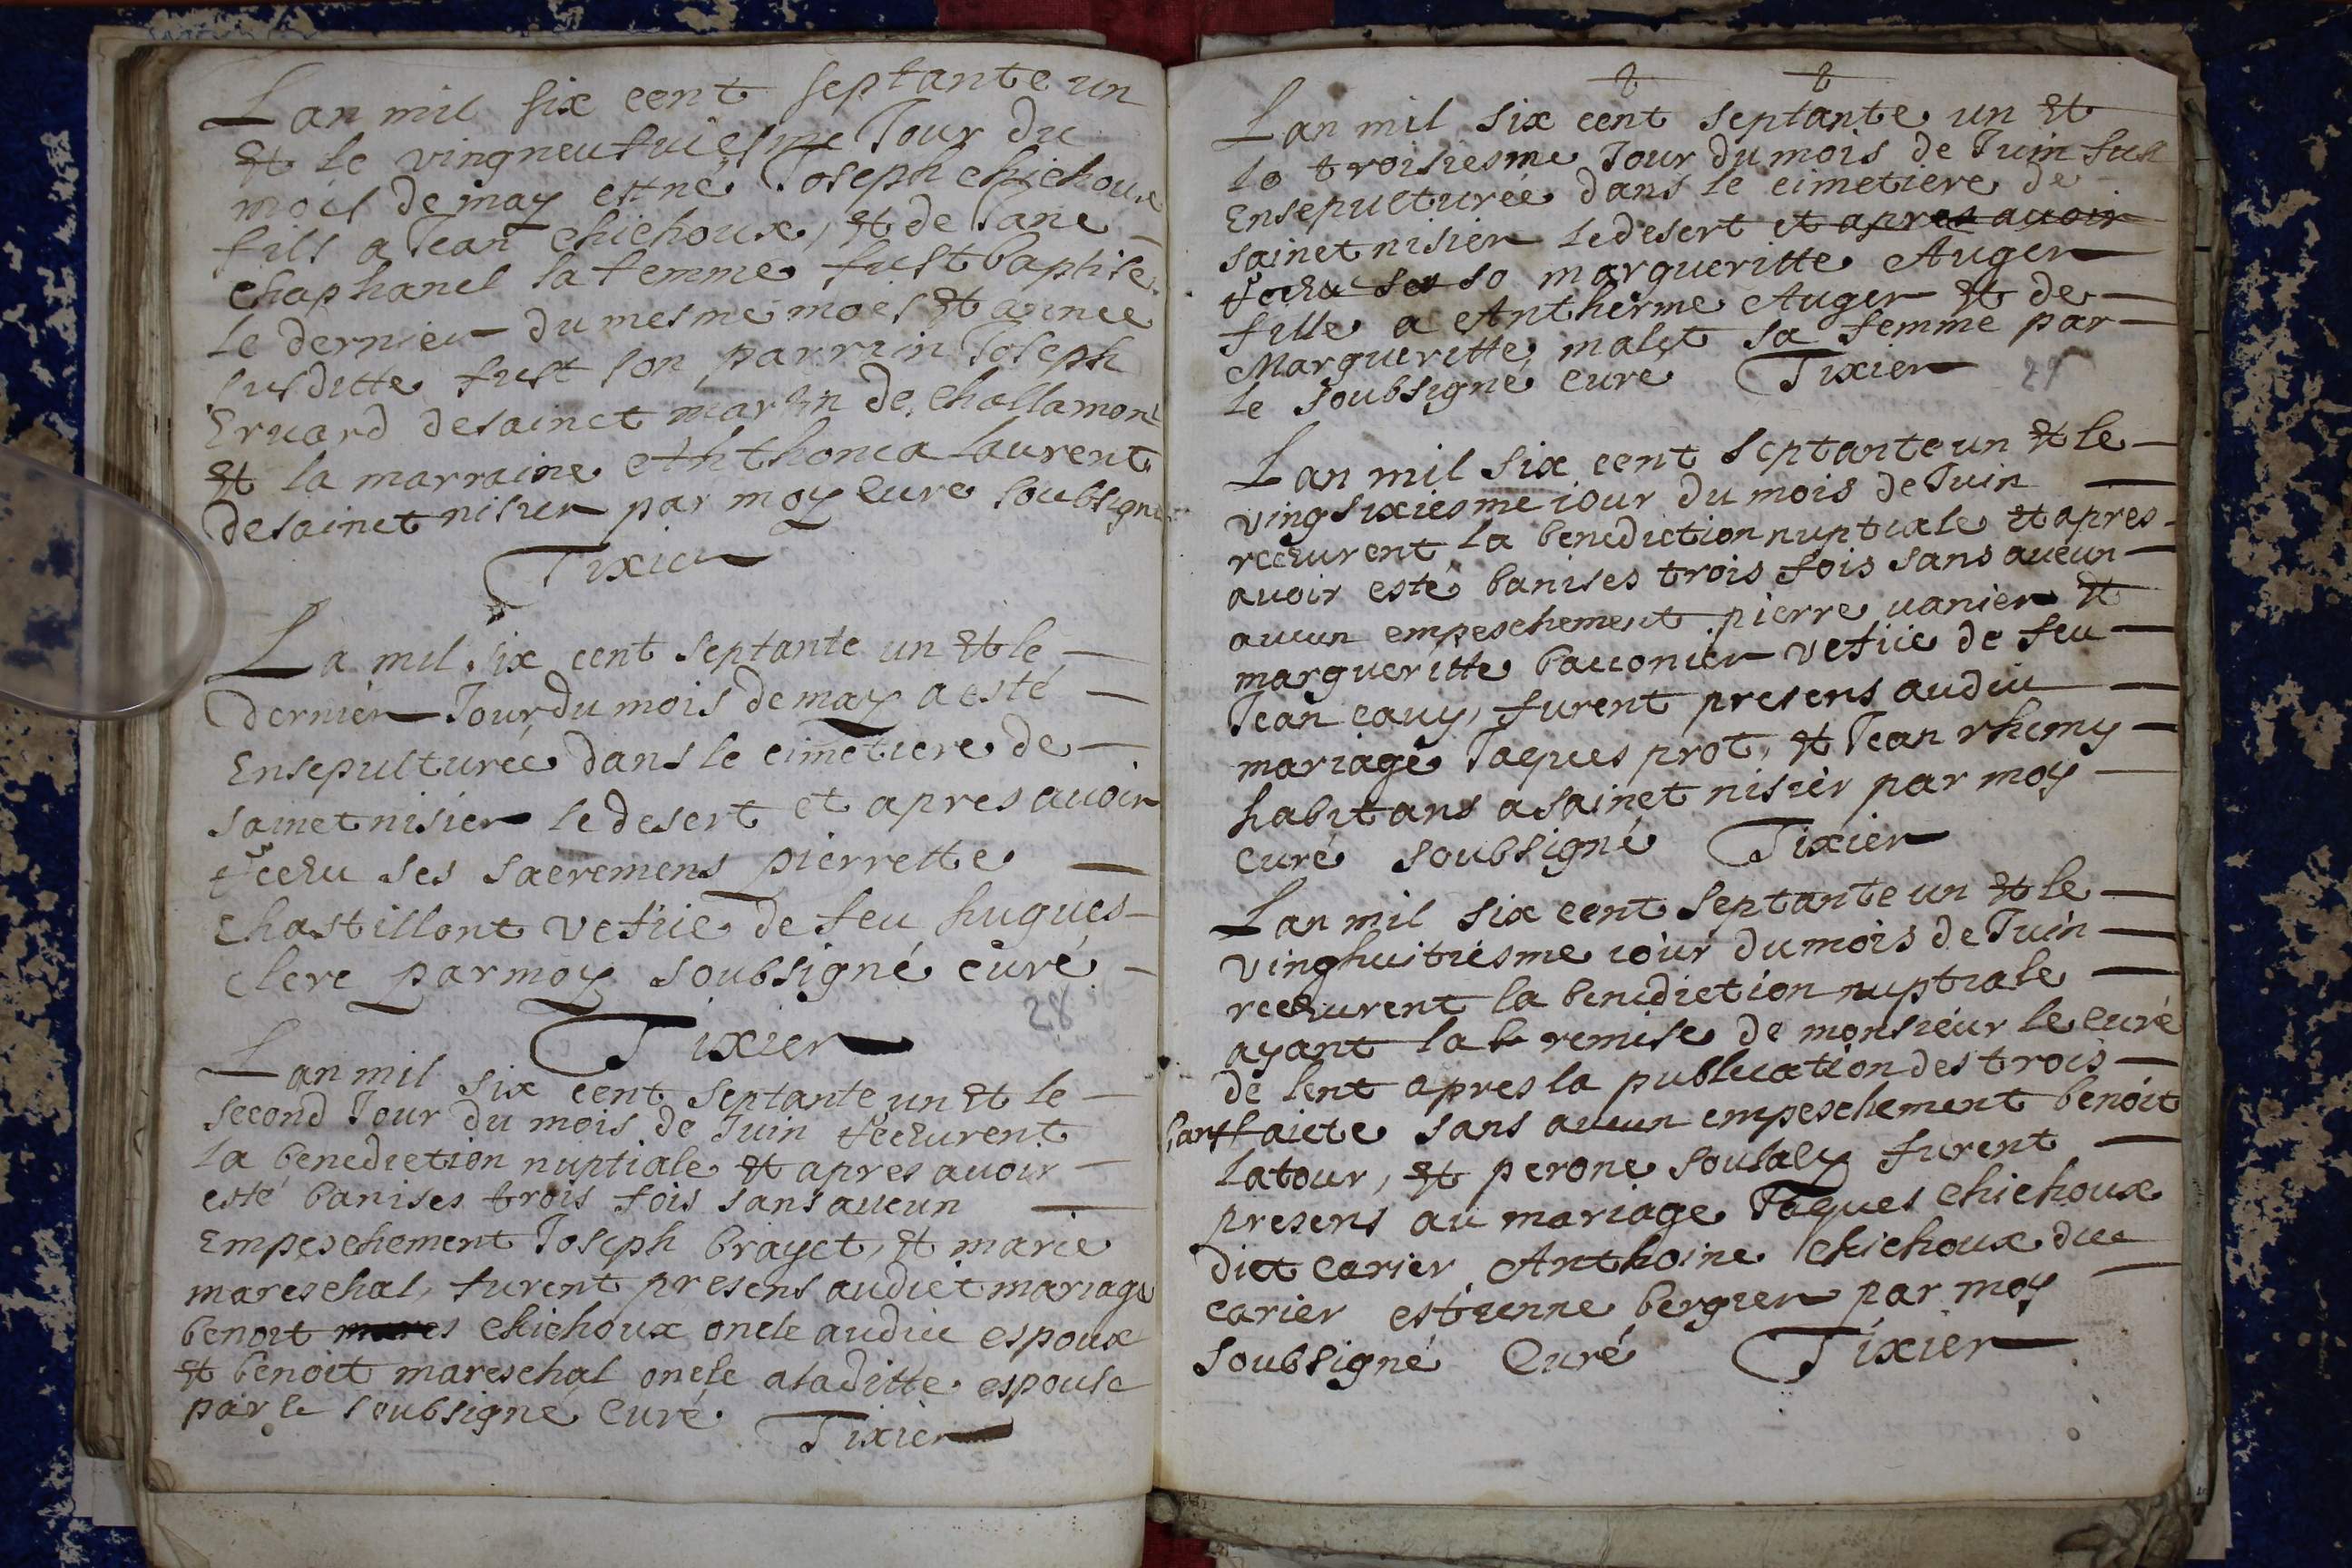 Lan mil six cent septante un
et le vingneufuiesme Jour du
mois de may est né Joseph chichoux
fils a Jean chichoux, et de Jane
chaphanel sa femme fust baptise
le dernier du mesme mois et annee
susditte fust son parrain Joseph
Eruard de sainct martin de challamont
et la marraine Anthonia Laurent
de sainct nisier par moy curé soubsigné
Tixier
La mil six cent septante un et le
dernier Jour du mois de may a esté
Ensepulturée dans le cimetiere de
sainct nisier le desert et apres auoir
receu ses sacremens pierrette
chastillont vefue de feu hugues
clere par moy soubsigné curé
28
Tixier
Lan mil six cent septante un et le
second Jour du mois de Juin receurent
la benediction nuptiale et apres auoir
esté banises trois fois sans aucun
Empeschement Joseph brayet, et marie
mareschal, furent presens audict mariage
benoit chichoux oncle audic espoux
et benoit mareschal oncle a laditte espouse
par le soubsigné curé Tixier
Lan mil six cent septante un et
le troisiesme Jour du mois de Juin fust
Ensepulturée dans le cimetiere de
sainct nisier le desert et apres auoir
receu ses so margueritte Auger
fille a Antherme Auger et de
Margueritte malet sa femme par
le soubsigné curé Tixier 29
Lan mil six cent septante un et le
vingsixiesme iour du mois de Juin
receurent la benediction nuptiale et apres
auoir esté banises trois fois sans aucun
aucun empeschement pierre vanier et
margueritte bauonier vefue de feu
Jean cauy, furent presens audic
mariage Jaques prot, et Jean rhemy
habitans a sainct nisier par moy
curé soubsigné Tixier
Lan mil six cent septante un et le
vinghuitiesme iour du mois de Juin
receurent la benediction nuptiale
ayant la remise de monsieur le curé
de lent apres la publication des trois
bans faicte sans aucun empeschement benoit
latour, et perone soulaly furent
presens au mariage Jaques chichoux
dict carier Anthoine chichoux dic
carier estienne bergier par moy
soubsigné Curé Tixier